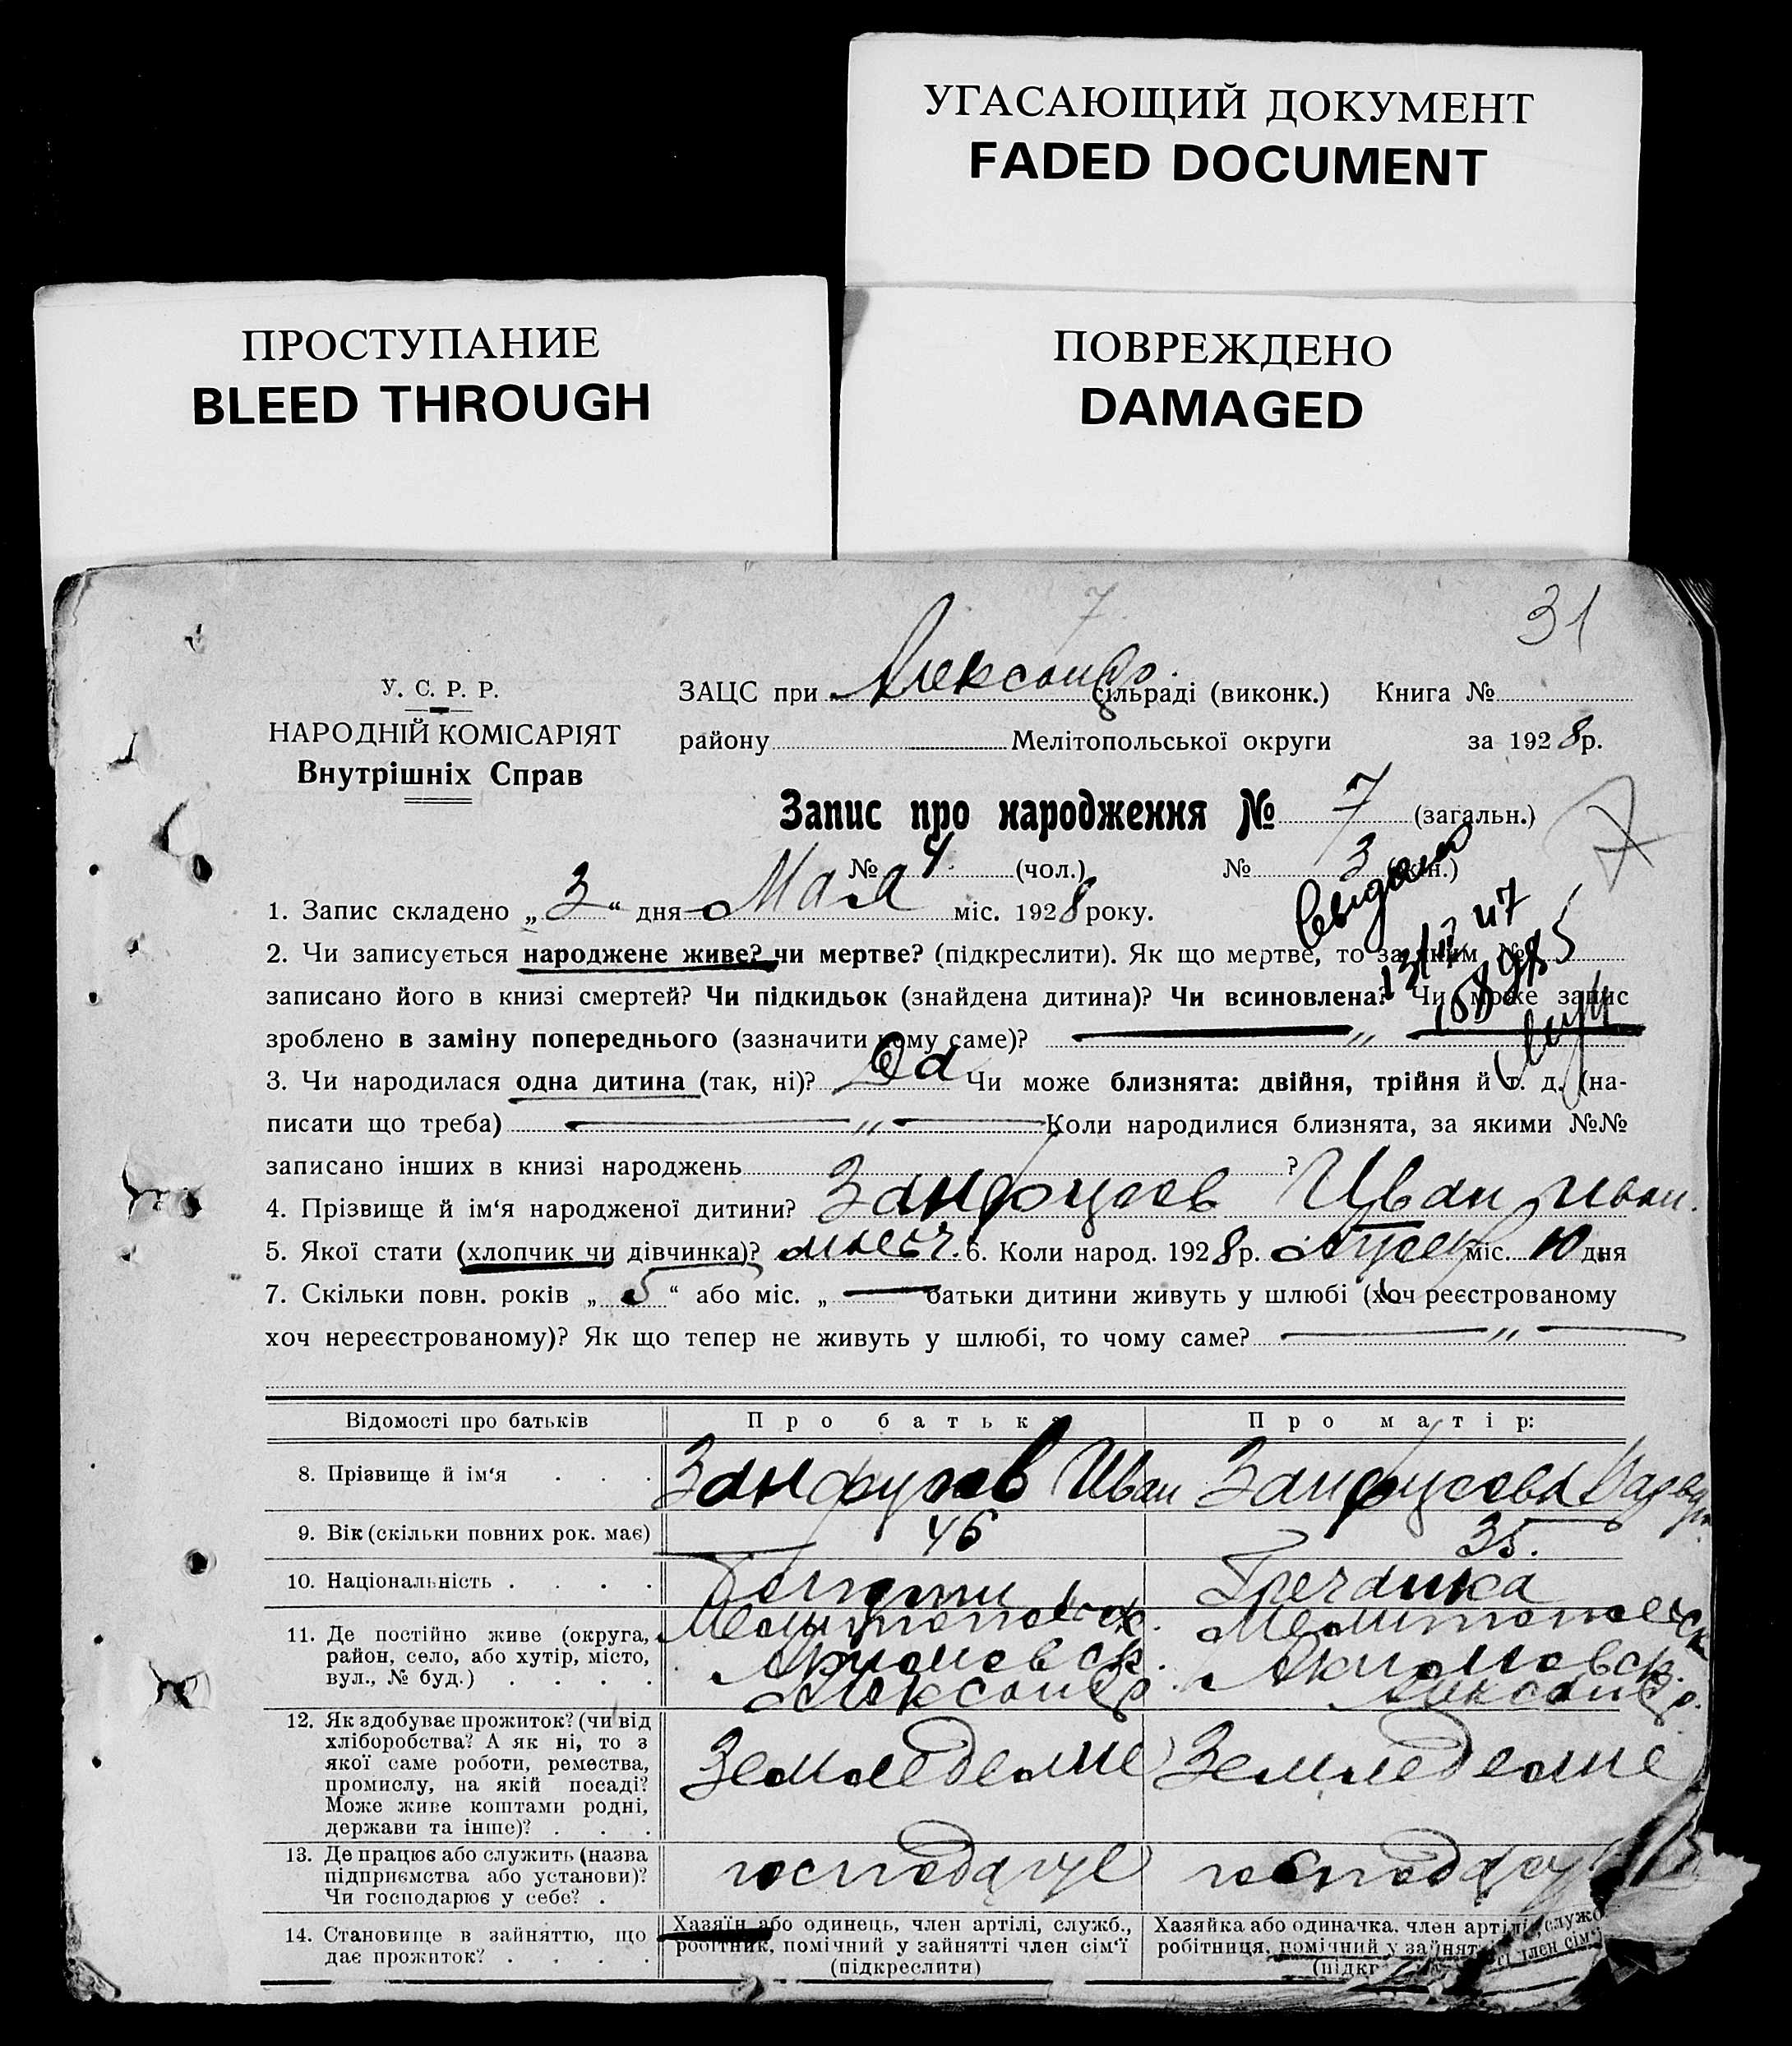 УГАСАЮЩИЙ ДОКУМЕНТ
FADED DOCUMENT
ПРОСТУПАНИЕ
BLEED THROUGH
ПОВРЕЖДЕНО
DAMAGED
7
31
У. С. Р. Р.
НАРОДНІЙ КОМІСАРІЯТ
Внутрішніх Справ
ЗАЦС при Александр. сільраді (виконк.) Книга №
району Мелітопольської округи за 1928р.
Запис про народження № 7 (загальн.)
7
№ 4 (чол.) № 3 (жін.)
1. Запис складено „3“ дня Мая міс. 1928 року.
13/II 47
2. Чи записується народжене живе? чи мертве? (підкреслити). Як що мертве, то за яким №
записано його в книзі смертей? Чи підкидьок (знайдена дитина)? Чи всиновлена? Чи може запис
зроблено в заміну попереднього (зазначити чому саме)? „
3. Чи народилася одна дитина (так, ні)? Да Чи може близнята: двійня, трійня й т. д. (на-
писати що треба) „ Коли народилися близнята, за якими №№
записано інших в книзі народжень ?
4. Прізвище й ім‘я народженої дитини? Иван Иван.
5. Якої стати (хлопчик чи дівчинка)? 6. Коли народ. 1928р. міс. 10 дня
7. Скільки повн. років „5“ або міс. „ батьки дитини живуть у шлюбі (хоч реєстрованому
хоч нереєстрованому)? Як що тепер не живуть у шлюбі, то чому саме? „
Відомості про батьків Про батька Про матір:
8. Прізвище й ім‘я . . . Иван
9. Вік (скільки повних рок. має) 46 35.
10. Національність . . . . Гречанка
11. Де постійно живе (округа, Мелитопольск. Мелитопольск
район, село, або хутір, місто, Акимовск. Акимовск.
вул., № буд.) . . . . Александр. Александр.
12. Як здобуває прожиток? (чи від
хліборобства? А як ні, то з
якої саме роботи, ремества, Земледелие Земледелие
промислу, на якій посаді?
Може живе коштами родні,
держави та інше)? . . .
13. Де працює або служить (назва
підприємства або установи)? господарує господарує
Чи господарює у себе? .
14. Становище в зайняттю, що Хазяїн або одинець, член артілі, служб., Хазяйка або одиначка, член артілі, служб
дає прожиток? . . . . робітник, помічний у зайнятті член сім‘ї робітниця, помічний у зайнятті член сім‘ї
(підкреслити) (підкр